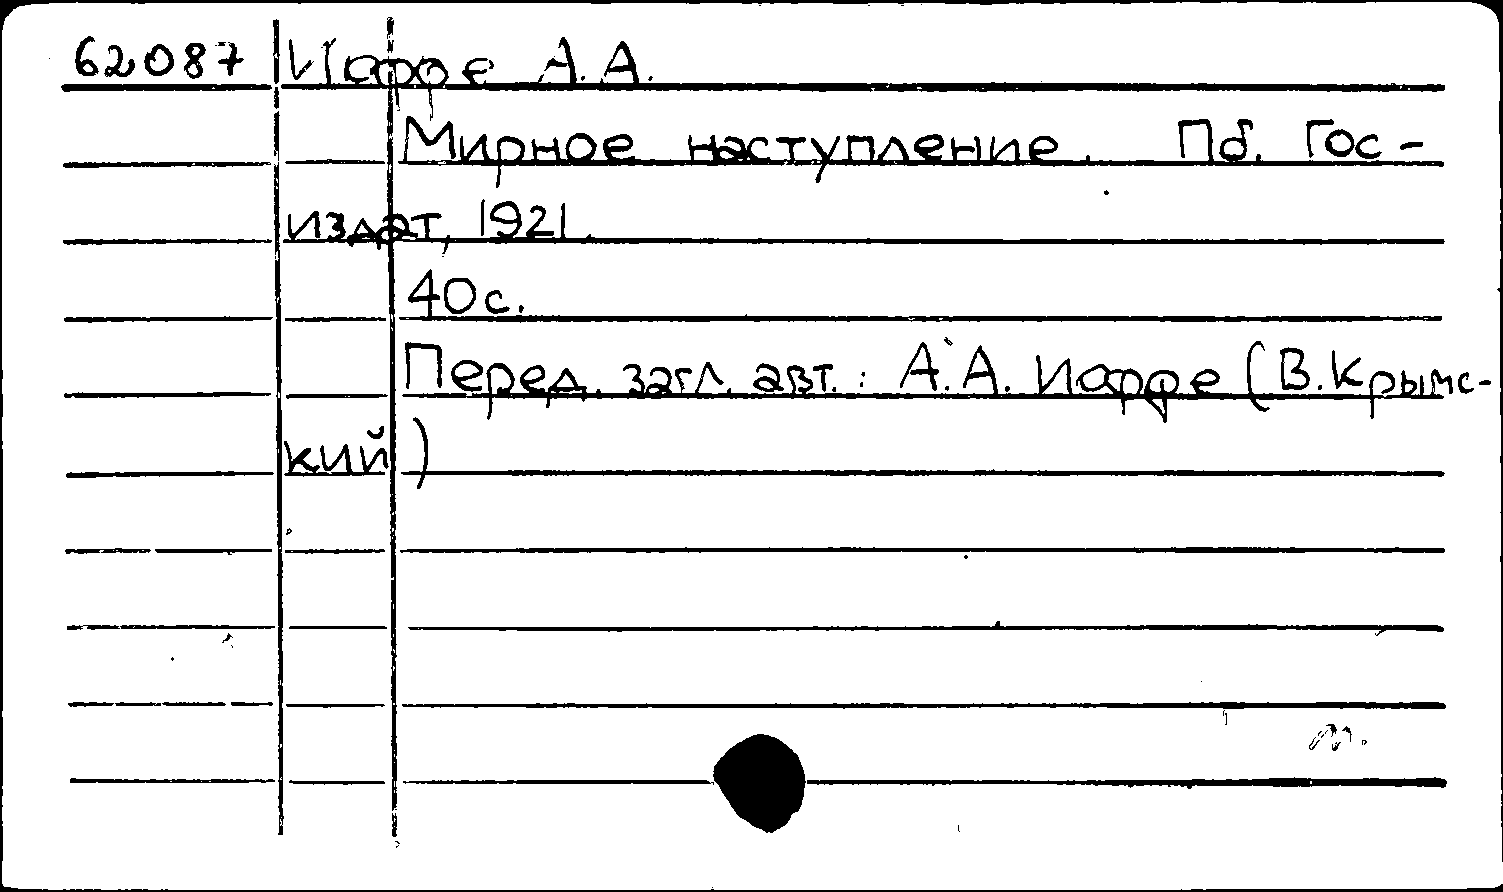 62087 Иоффе А.А.
Мирное наступление. Пб. Гос-
издат, 1921.
40с.
Перед. загл. авт.: А.А. Иоффе (В.Крымс-
кий)